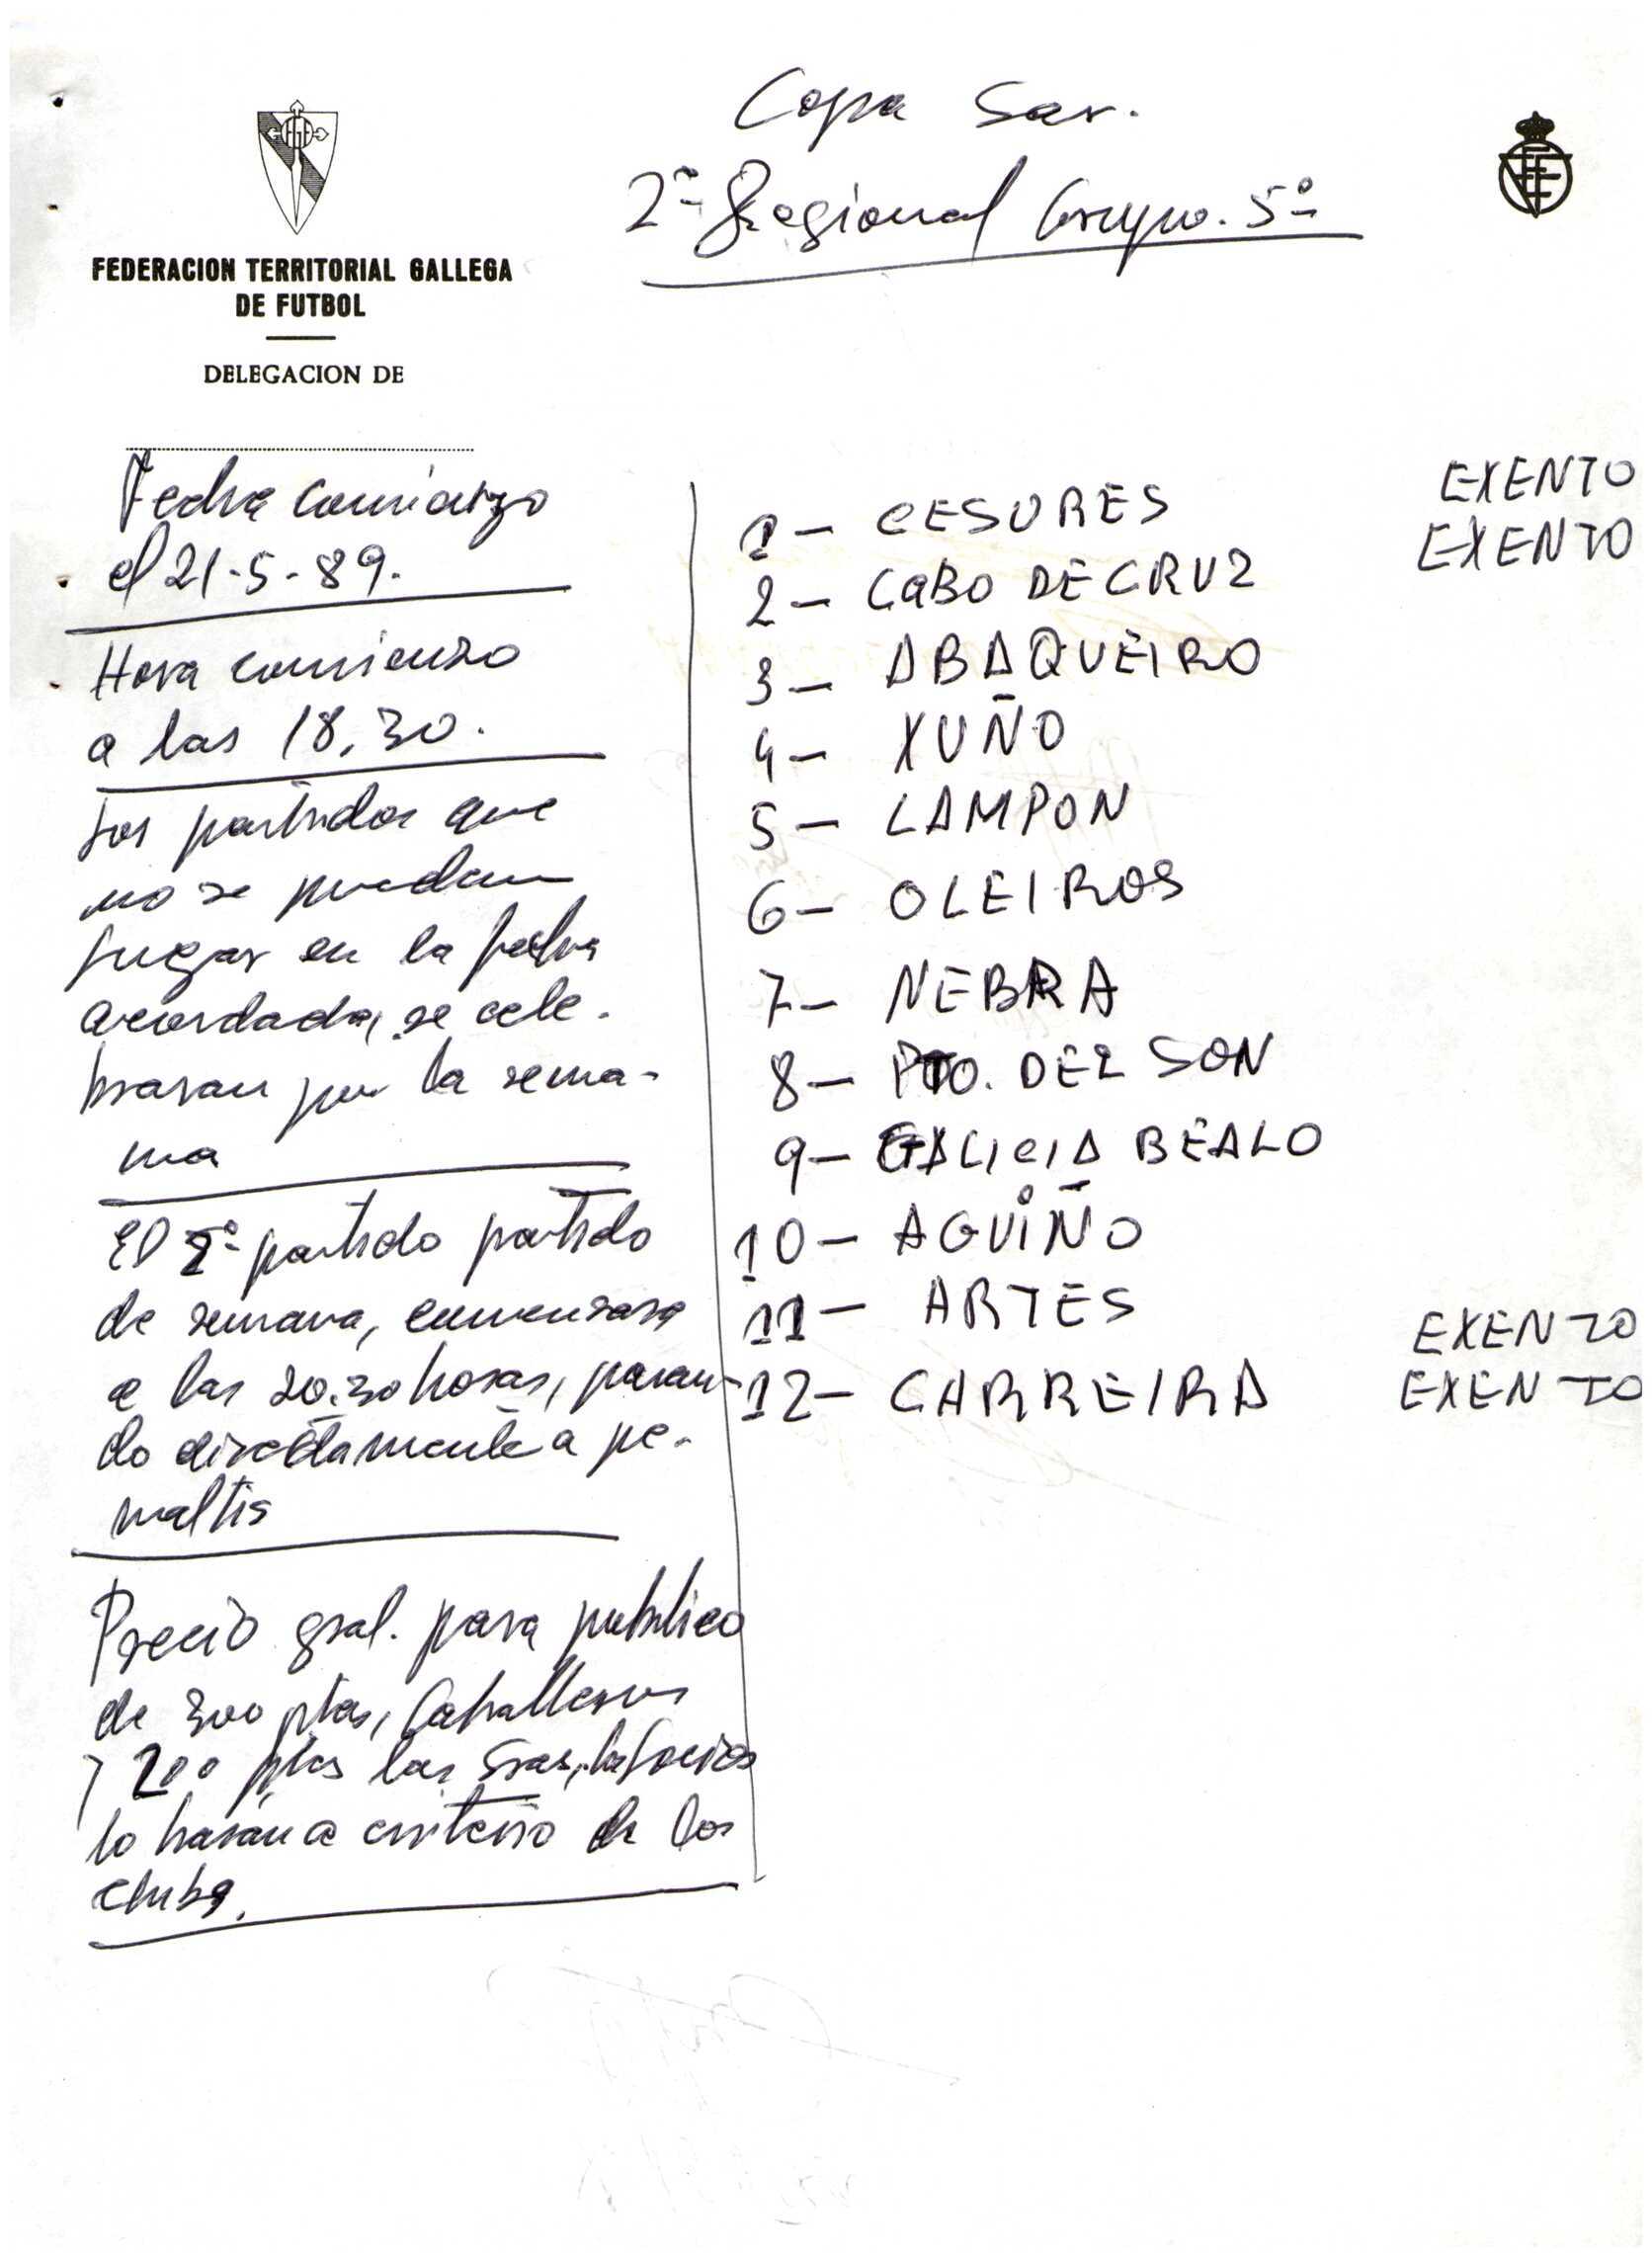 Copa Sar.
2ª Regional Grupo. 5º
FEDERACION TERRITORIAL GALLEGA
DE FUTBOL
DELEGACION DE
Fecha comienzo
el 21-5-89.
Hora comienzo
a las 18,30.
Los partidos que
no se puedan
jugar en la fecha
acordada, se cele-
braran por la sema-
na
El 2º partido partido
de semana, comenzara
a las 20.30 horas, pasan-
do directamente a pe-
naltis
Precio gral. para publico
de 300 ptas, Caballeros
y 200 ptas las Sras, los Socios
lo harán a criterio de los
clubs.
1 - CESURES EXENTO
2 - CABO DE CRUZ EXENTO
3 - ABAQUEIRO
4 - XUÑO
5 - LAMPON
6 - OLEIROS
7 - NEBRA
8 - PTO. DEL SON
9 - GALICIA BEALO
10 - AGUIÑO
11 - ARTES EXENTO
12 - CARREIRA EXENTO